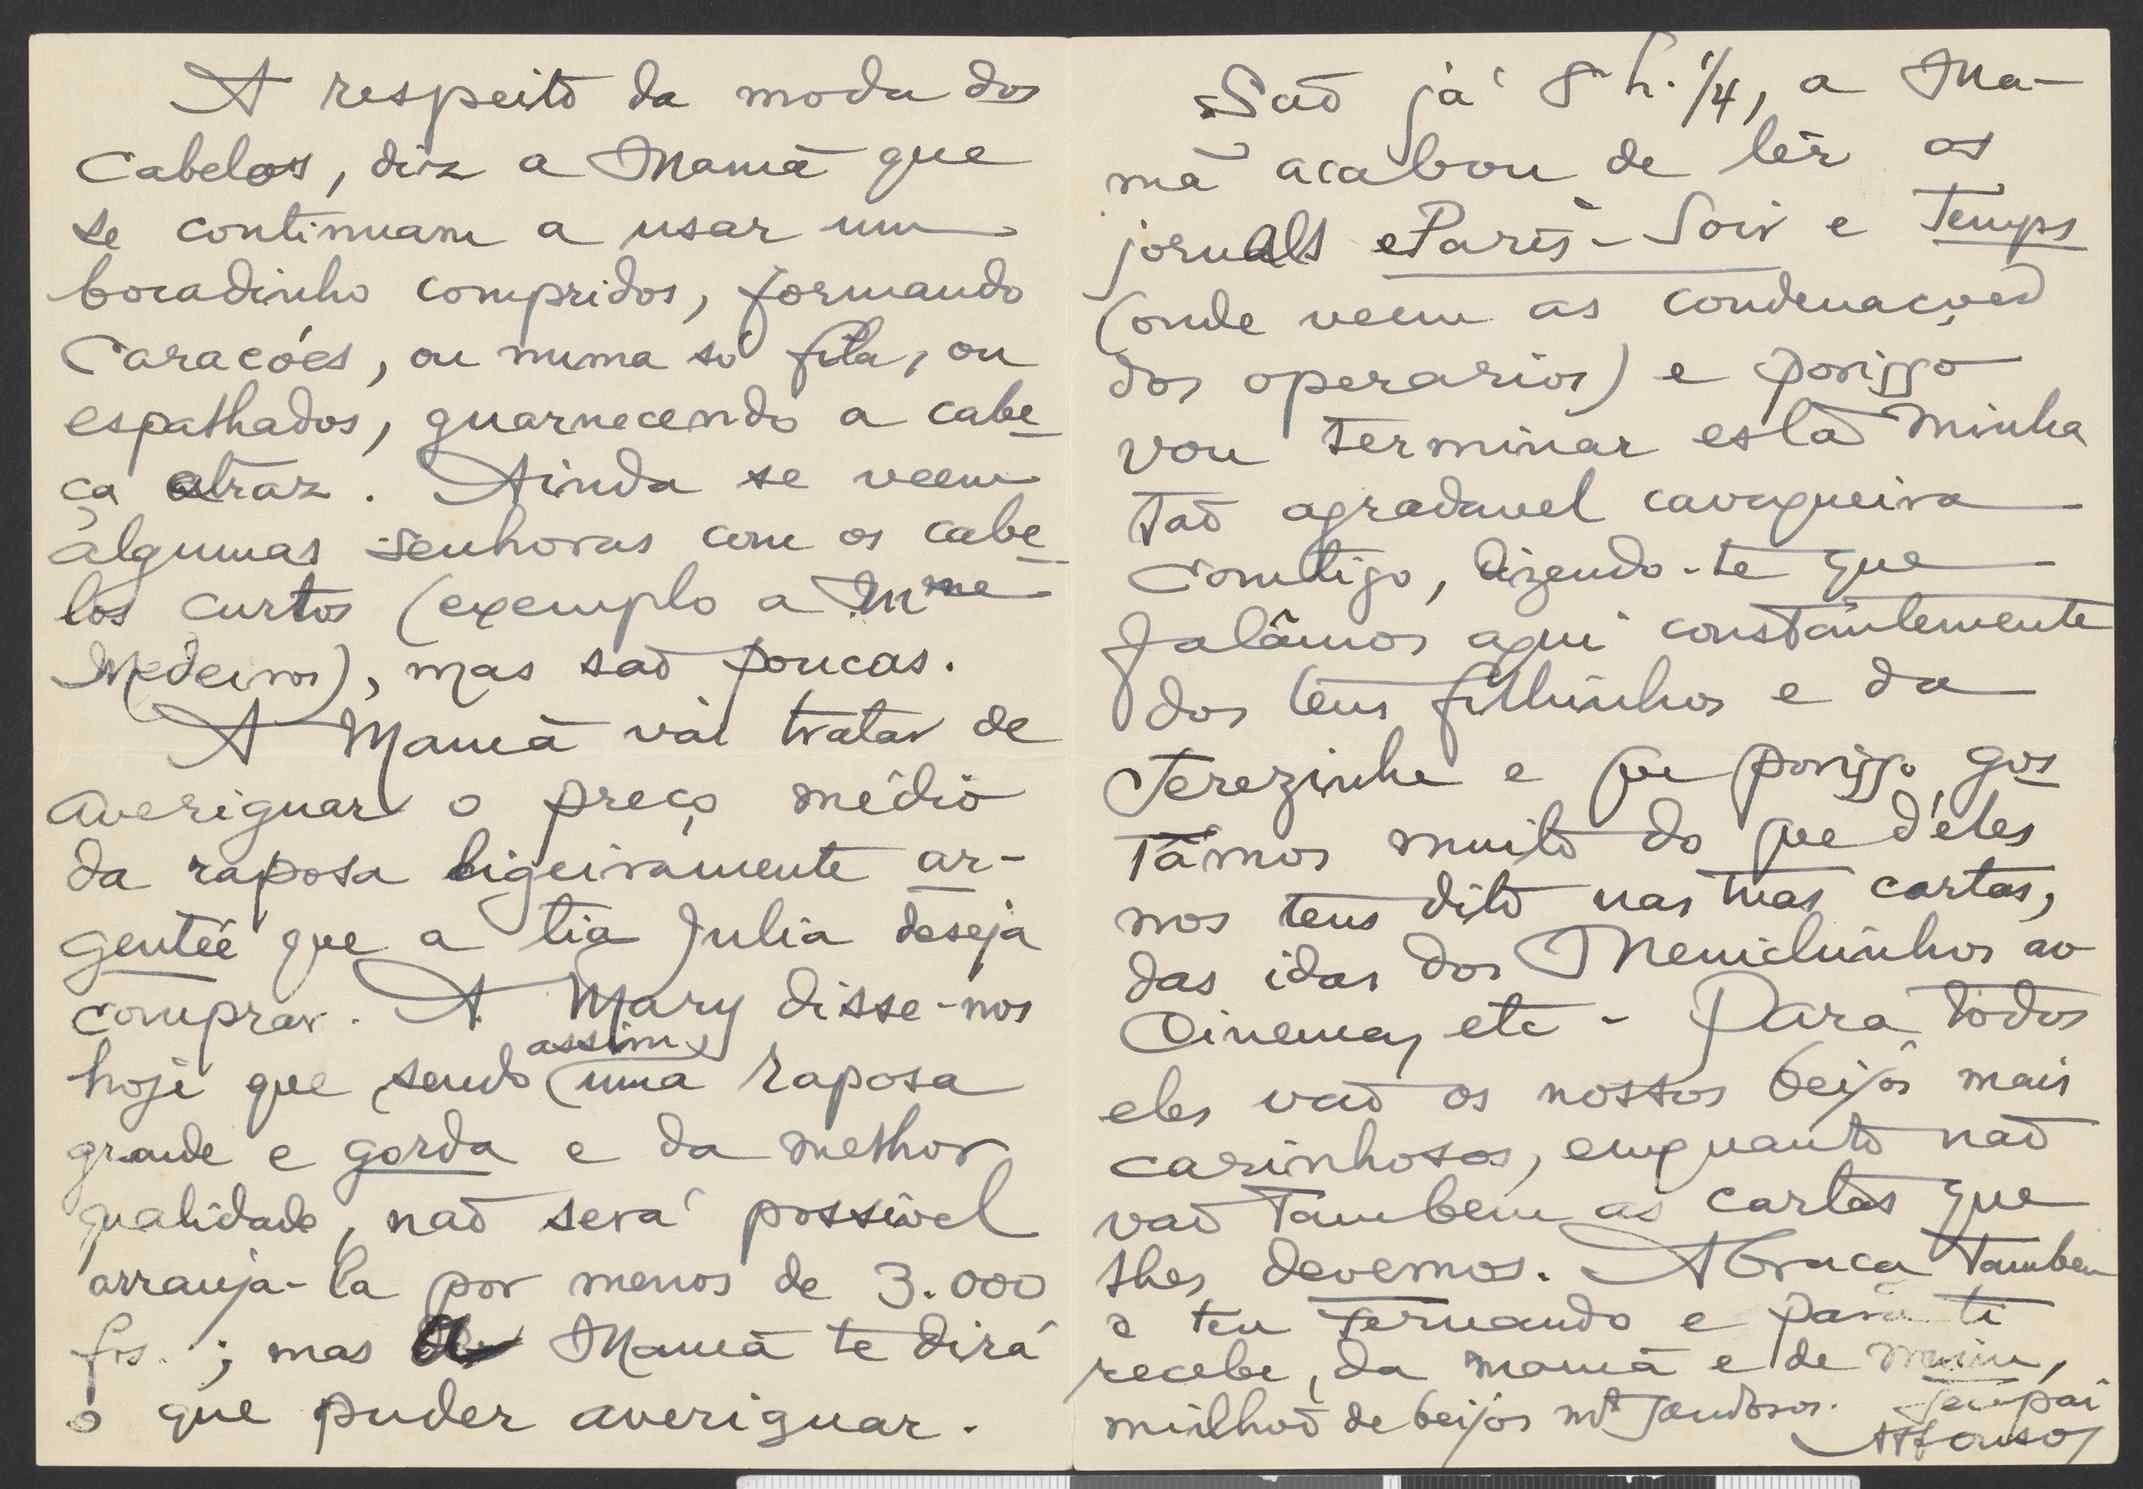 A respeito da moda dos
cabelos, diz a Mamã que
se continuam a usar um
bocadinho compridos, formando
caracóes, ou numa só fila, ou
espalhados, guarnecendo a cabe-
ça atraz. Ainda se veem
algumas senhoras com os cabe-
los curtos (exemplo a Mme
Medeiros), mas são poucas.
A Mamã vai tratar de
averiguar o preço médio
da raposa ligeiramente ar-
gentée que a tia Julia deseja
comprar. A Mary disse-nos
hoje que sendo assim uma raposa
grande e gorda e da melhor
qualidade, não será possivel
arranja-la por menos de 3.000
frs.; mas a Mamã te dirá
o que puder averiguar.
São já 8 h. 1/4, a Ma-
mã acabou de lêr os
jornais Paris-Soir e Temps
(onde veem as condenações
dos operarios) e porisso
vou terminar esta minha
tão agradavel cavaqueira
comtigo, dizendo-te que
falâmos aqui constantemente
dos teus filhinhos e da
Terezinha e que porisso gos
támos muito do que d'eles
nos tens dito nas tuas cartas,
das idas dos Meniclunhos ao
Cinema, etc - Para todos
eles vão os nossos beijos mais
carinhosos, emquanto não
vão tambem as cartas que
lhes devemos. Abraça tambem
o teu Fernando e para ti
recebe, da mamã e de mim,
milhão de beijos mt saudosos. Teu pai
Affonso